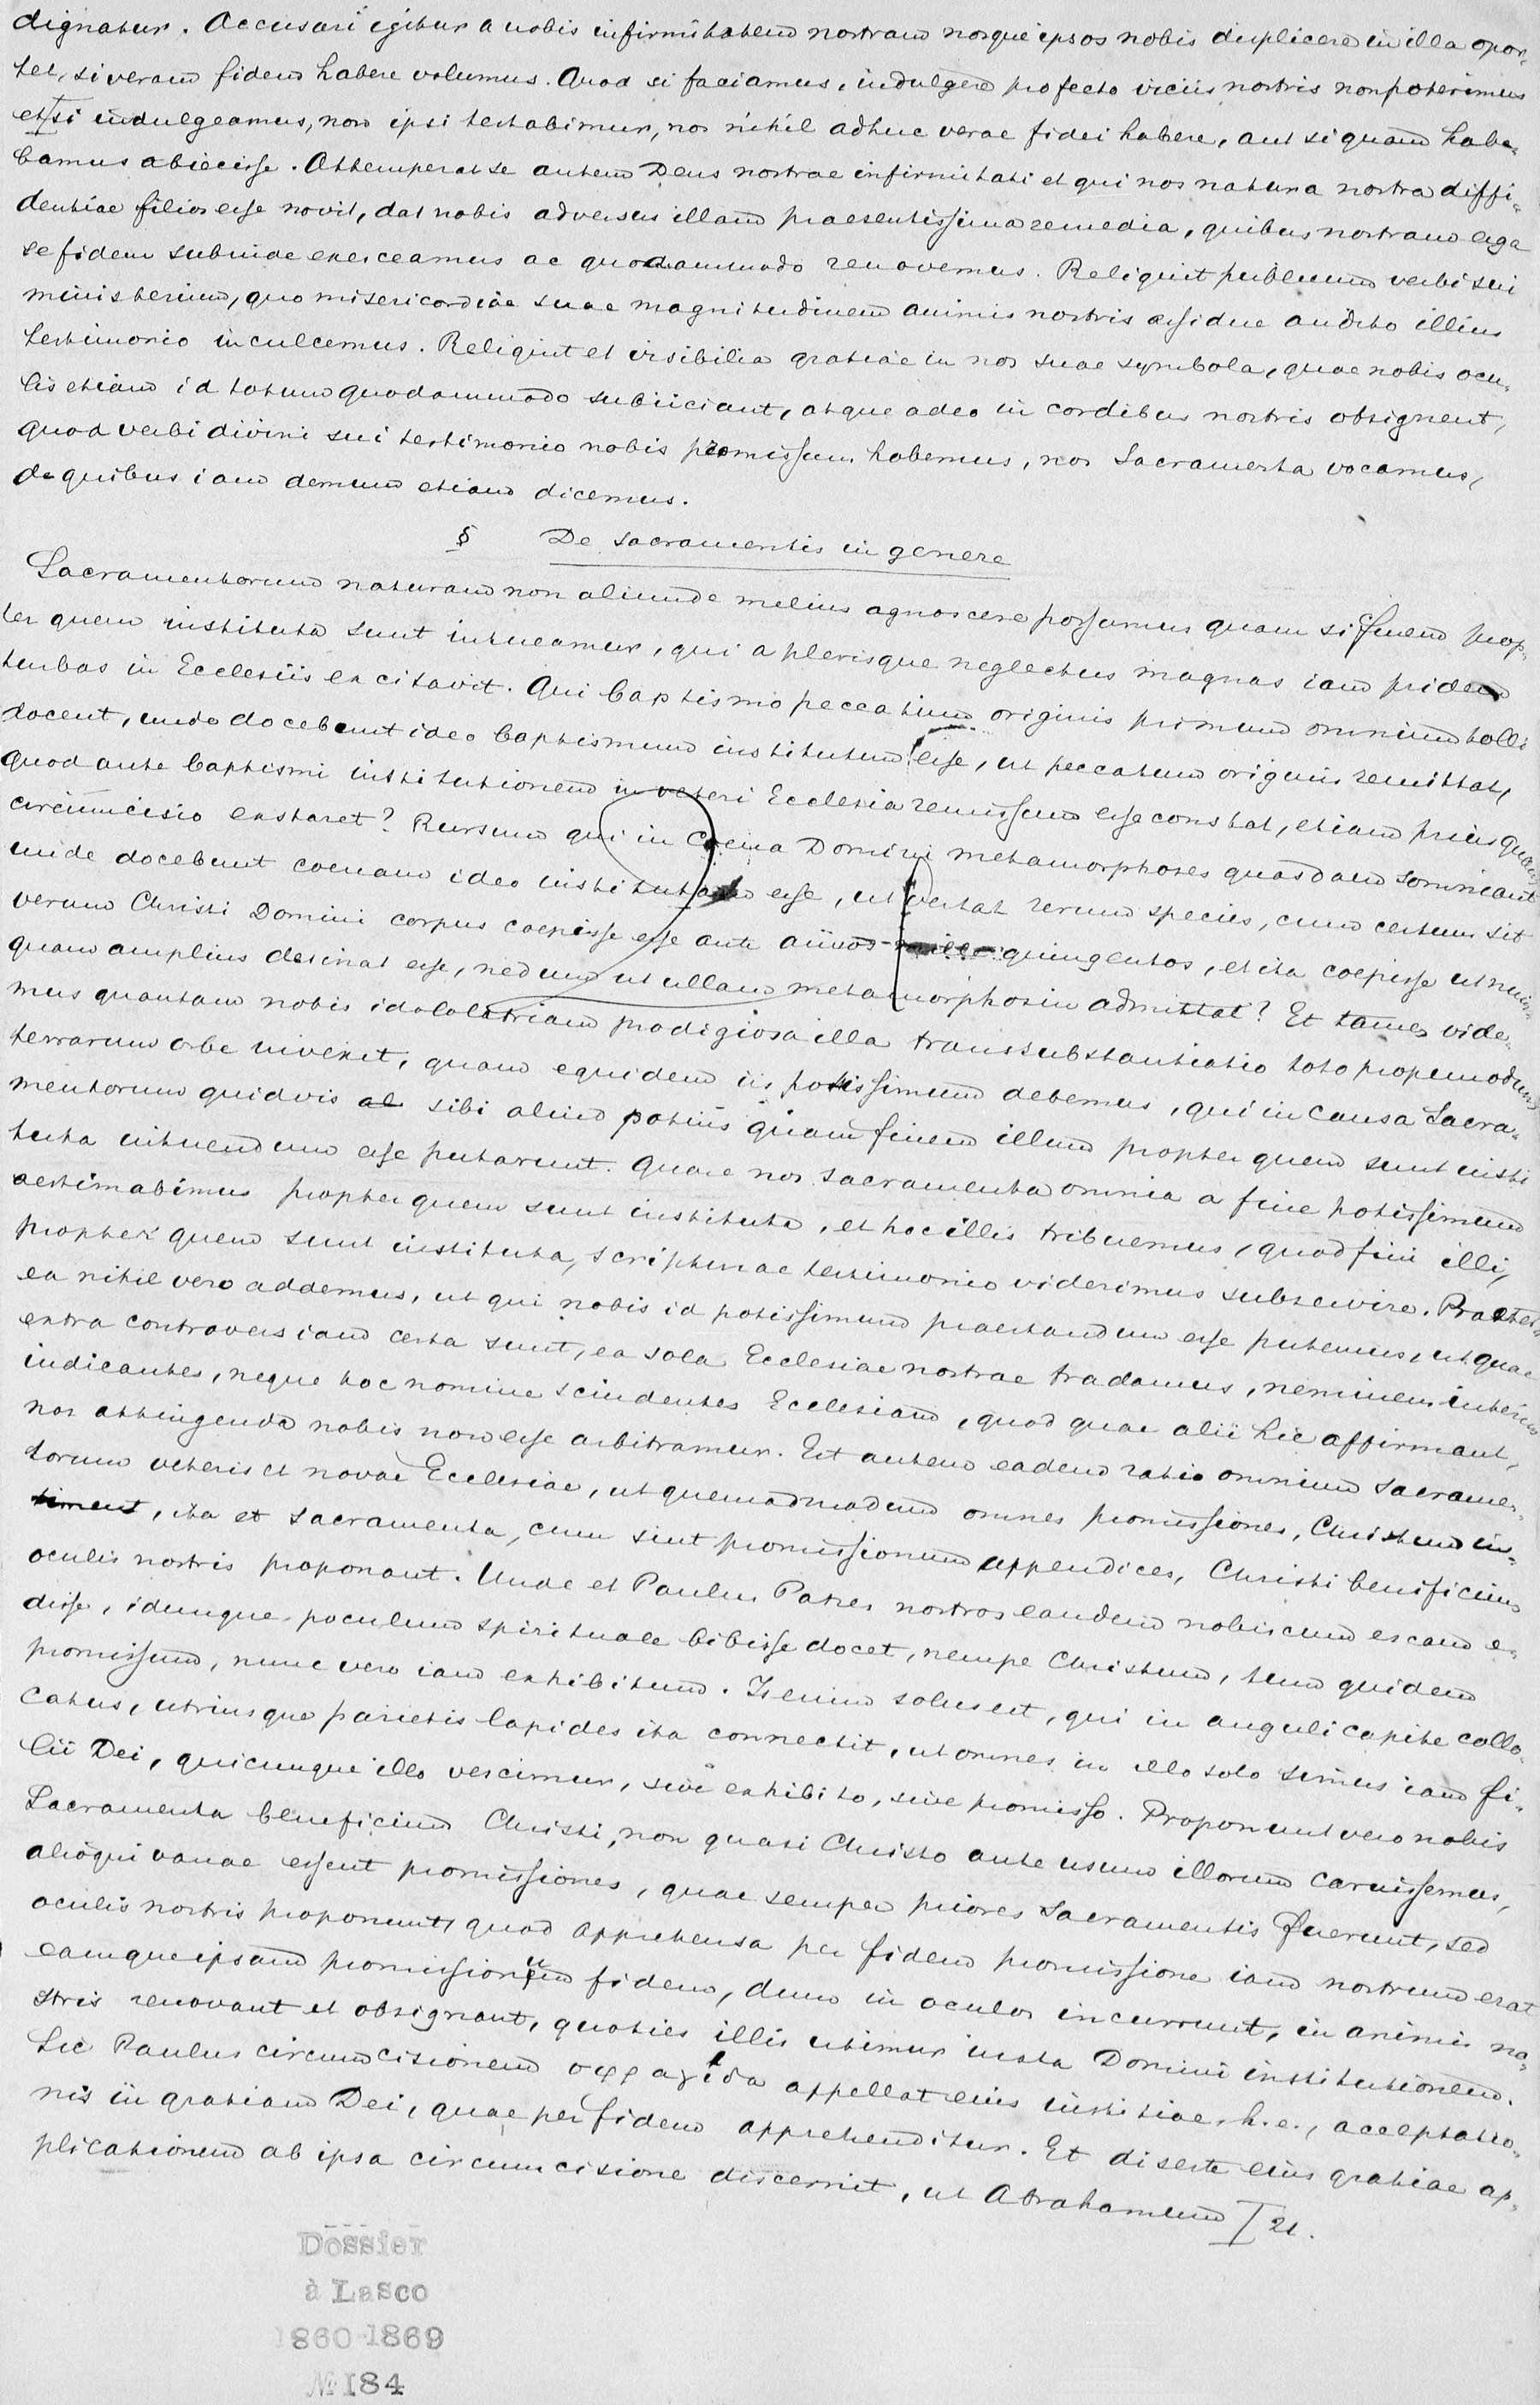 dignatur. Accusari igitur a nobis infirmitatem nostram nosque ipsos nobis displicere in illa opor-
tet, si veram fidem habere volumus. Quod si faciamus, indulgere profecto viciis nostris non poterimus
et si indulgeamus, non ipsi testabimur, nos nihil adhuc verae fidei habere, aut si quam habe-
bamus abiecisse. Attemperat se autem Deus nostrae infirmitati et qui nos natura nostra diffi-
dentiae filios esse novit, dat nobis adversus illam praesentissima remedia, quibus nostram erga
se fidem subinde exerceamus ac quodammodo renovemus. Reliquit publicum verbi sui
ministerium, quo misericordiae suae magnitudinem animis nostris assidue audito illius
testimonio inculcemus. Reliquit et visibilia gratiae in nos suae symbola, quae nobis ocu-
lis etiam id totum quodammodo subiiciant, atque adeo in cordibus nostris obsignent,
quod verbi divini sui testimonio nobis promissum habemus, nos Sacramenta vocamus,
de quibus iam demum etiam dicemus.
§ De sacramentis in genere
Sacramentorum naturam non aliunde melius agnoscere possumus quam si finem prop-
ter quem instituta sunt intueamur, qui a plerisque neglectus magnas iam pridem
turbas in Ecclesiis excitavit. Qui baptismo peccatum originis primum omnium tolli
docent, unde docebunt ideo baptismum institutum esse, ut peccatum originis remittat,
quod ante baptismi institutionem in veteri Ecclesia remissum esse constat, etiam priusquam
circumcisio extaret? Rursum qui in Coena Domini metamorphoses quasdam somniant
unde docebunt coenam ideo institutam esse, ut vertat rerum species, cum certum sit
verum Christi Domini corpus coepisse esse ante annos mille quingentos, et ita coepisse ut nun-
quam amplius desinat esse, nedum ut ullam metamorphosin admittat? Et tamen vide-
mus quantam nobis idololatriam prodigiosa illa transsubstantiatio toto propemodum
terrarum orbe invexit, quam equidem iis potissimum debemus, qui in causa Sacra-
mentorum quidvis al sibi aliud potius quam finem illum propter quem sunt insti
tuta intuendum esse putarunt. Quare nos sacramenta omnia a fine potissimum
aestimabimus propter quem sunt instituta, et hoc illis tribuemus, quod fini illi,
propter quem sunt instituta, scripturae testimonio viderimus subservire. Praeter
ea nihil vero addemus, ut qui nobis id potissimum praestandum esse putemus, ut quae
extra controversiam certa sunt, ea sola Ecclesiae nostrae tradamus, neminem interim
iudicantes, neque hoc nomine scindentes Ecclesiam, quod quae alii hic affirmant,
nos attingenda nobis non esse arbitramur. Est autem eadem ratio omnium sacramen-
torum veteris et novae Ecclesiae, ut quemadmodum omnes promissiones, Christum in-
, ita et sacramenta, cum sint promissionum appendices, Christi beneficium
oculis nostris proponant. Unde et Paulus Patres nostros eandem nobiscum escam e-
disse, idemque poculum spirituale bibisse docet, nempe Christum, tum quidem
promissum, nunc vero iam exhibitum. Is enim solus est, qui in anguli capite collo-
catus, utriusque parietis lapides ita connectit, ut omnes in illo solo simus iam fi-
lii Dei, quicunque illo vescimur, sive exhibito, sive promisso. Proponunt vero nobis
Sacramenta beneficium Christi, non quasi Christo ante usum illorum caruissemus,
alioqui vanae essent promissiones, quae semper priores Sacramentis fuerunt, sed
oculis nostris proponunt, quod apprehensa per fidem promissione iam nostrum erat
eamque ipsam promissionum fidem, dum in oculos incurrunt, in animis no-
stris renovant et obsignant, quoties illis utimur iuxta Domini institutionem.
Sic Paulus circumcisionem σφραγίδα appellat eius iustitiae, h.e., acceptatio-
nis in gratiam Dei, quae per fidem apprehenditur. Et diserte eius gratiae ap-
plicationem ab ipsa circumcisione discernit, ut Abrahamum I 21.
Dossier
à Lasco
1860-1869
№ 184